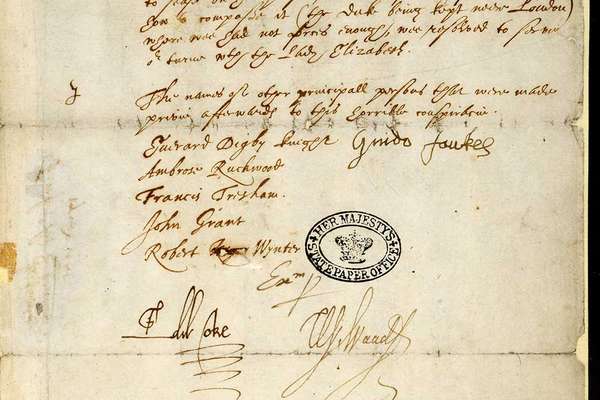 how to compasse it (the Duke being kept neere London)
where wee had not forces enough, wee resolved to serve
or turne wth the Lady Elizabeth.
The names of other principall persons that were made
privie afterwards to this horrible conspiracie.
Everard Digby knight Guido faukes
Ambrose Ruckwood
Francis Tresham.
John Grant
Robert Wynter
HER MAJESTYS STATE PAPER OFFICE
Exm p
Edw Coke W Waad